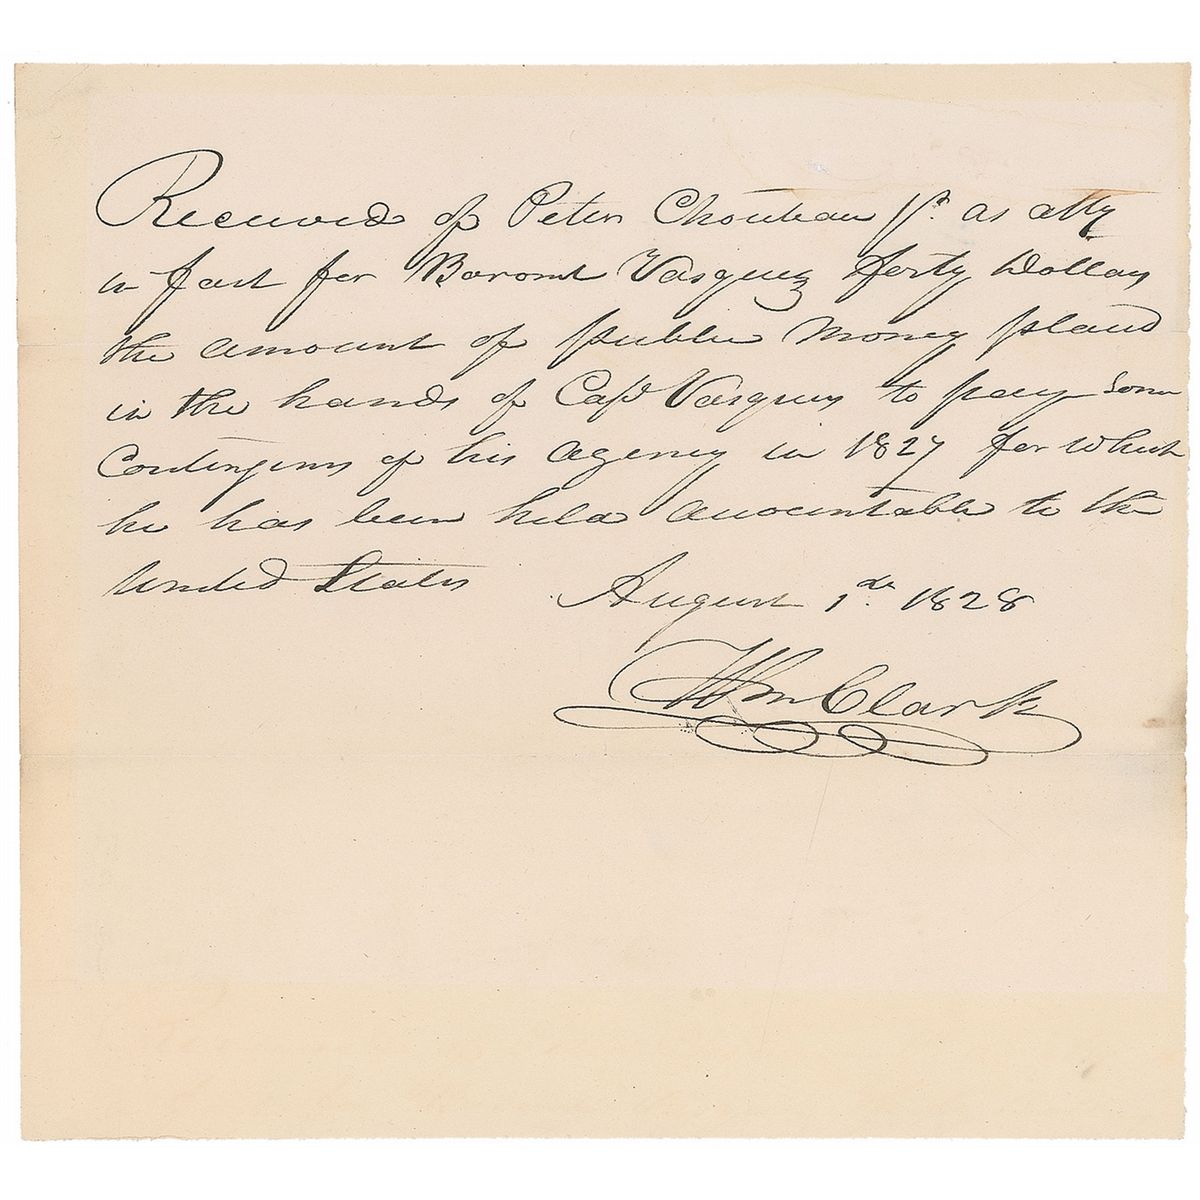 Received of Peter Chouteau Jr. as atty
in fact for Baronet Vasquez forty Dollars
the amount of public money placed
in the hands of Capt Vasques to pay some
Contingens of his agency in 1827 for which
he has been held accountable to the
United States August 1st. 1828
Wm Clark